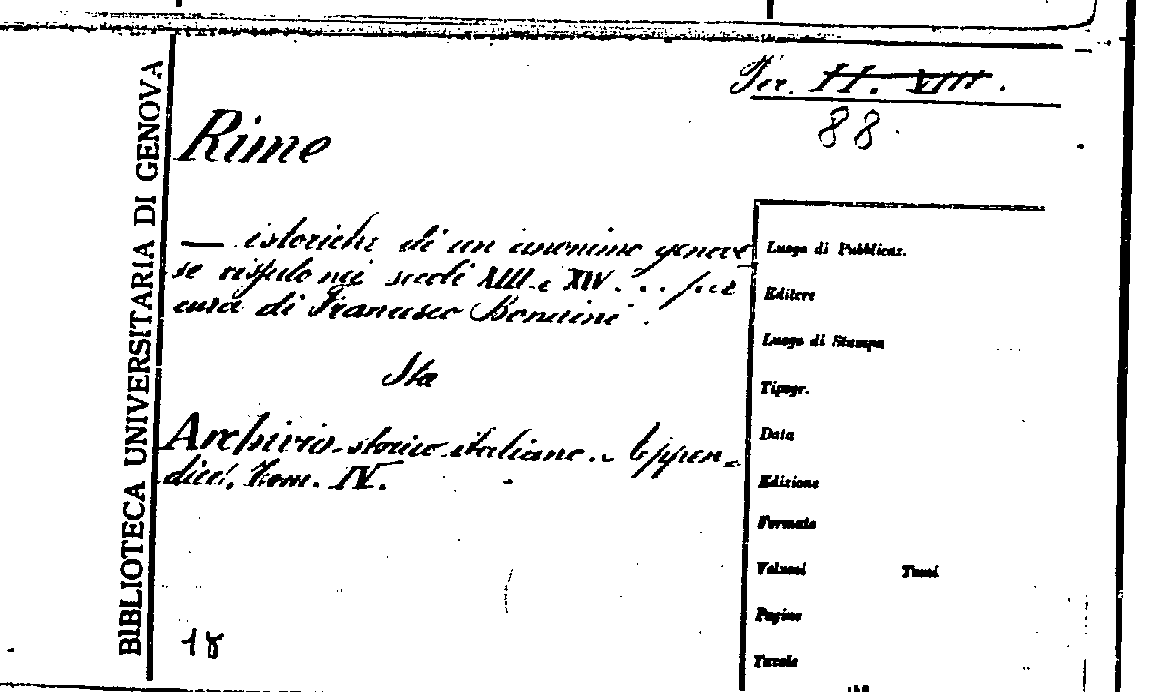 BIBLIOTECA UNIVERSITARIA DI GENOVA
Per. II. VIII.
88.
Rime
— istoriche di un anonimo genove
se vissuto nei secoli XIII e XIV. . . per
cura di Francesco Bonaini.
Sta
Archivio storico italiano. Appen=
dice, Tom. IV.
18
Luogo di Pubblicaz.
Editore
Luogo di Stampa
Tipogr.
Data
Edizione
Formato
Volumi Tomi
Pagine
Tavole